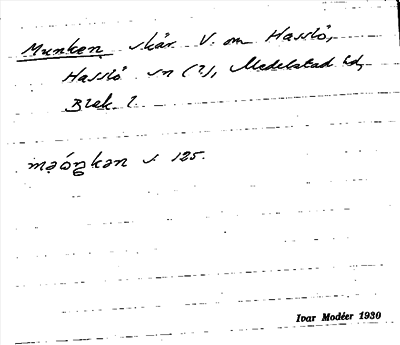 Munken skär V. om Hasslö,
Hasslö sn (?), Medelstad hd,
Blek. l.
mǝóŋkǝn s. 125.
Ivar Modéer 1930